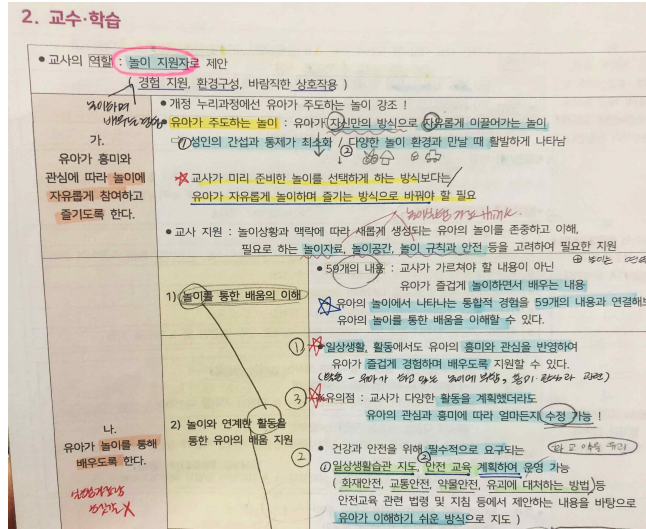 2. 교수·학습
• 교사의 역할 : 놀이 지원자로 제안
( 경험 지원, 환경구성, 바람직한 상호작용 )
놀이하며
가.
유아가 흥미와
관심에 따라 놀이에
자유롭게 참여하고
즐기도록 한다.
• 개정 누리과정에선 유아가 주도하는 놀이 강조 !
• 유아가 주도하는 놀이 : 유아가 자신만의 방식으로 자유롭게 이끌어가는 놀이
① 성인의 간섭과 통제가 최소화 / ② 다양한 놀이 환경과 만날 때 활발하게 나타남
☆ 교사가 미리 준비한 놀이를 선택하게 하는 방식보다는
유아가 자유롭게 놀이하며 즐기는 방식으로 바꿔야 할 필요
think.
• 교사 지원 : 놀이상황과 맥락에 따라 새롭게 생성되는 유아의 놀이를 존중하고 이해,
필요로 하는 놀이자료, 놀이공간, 놀이 규칙과 안전 등을 고려하여 필요한 지원
나.
유아가 놀이를 통해
배우도록 한다.
1) 놀이를 통한 배움의 이해
• 59개의 내용 : 교사가 가르쳐야 할 내용이 아닌
유아가 즐겁게 놀이하면서 배우는 내용
☆ 유아의 놀이에서 나타나는 통합적 경험을 59개의 내용과 연결해
유아의 놀이를 통한 배움을 이해할 수 있다.
2) 놀이와 연계한 활동을
통한 유아의 배움 지원
① • 일상생활, 활동에서도 유아의 흥미와 관심을 반영하여
유아가 즐겁게 경험하며 배우도록 지원할 수 있다.
③ • 유의점 : 교사가 다양한 활동을 계획했더라도
유아의 관심과 흥미에 따라 얼마든지 수정 가능 !
② • 건강과 안전을 위해 필수적으로 요구되는
① 일상생활습관 지도, ② 안전 교육 계획하여 운영 가능
( 화재안전, 교통안전, 약물안전, 유괴에 대처하는 방법 ) 등
안전교육 관련 법령 및 지침 등에서 제안하는 내용을 바탕으로
유아가 이해하기 쉬운 방식으로 지도 )